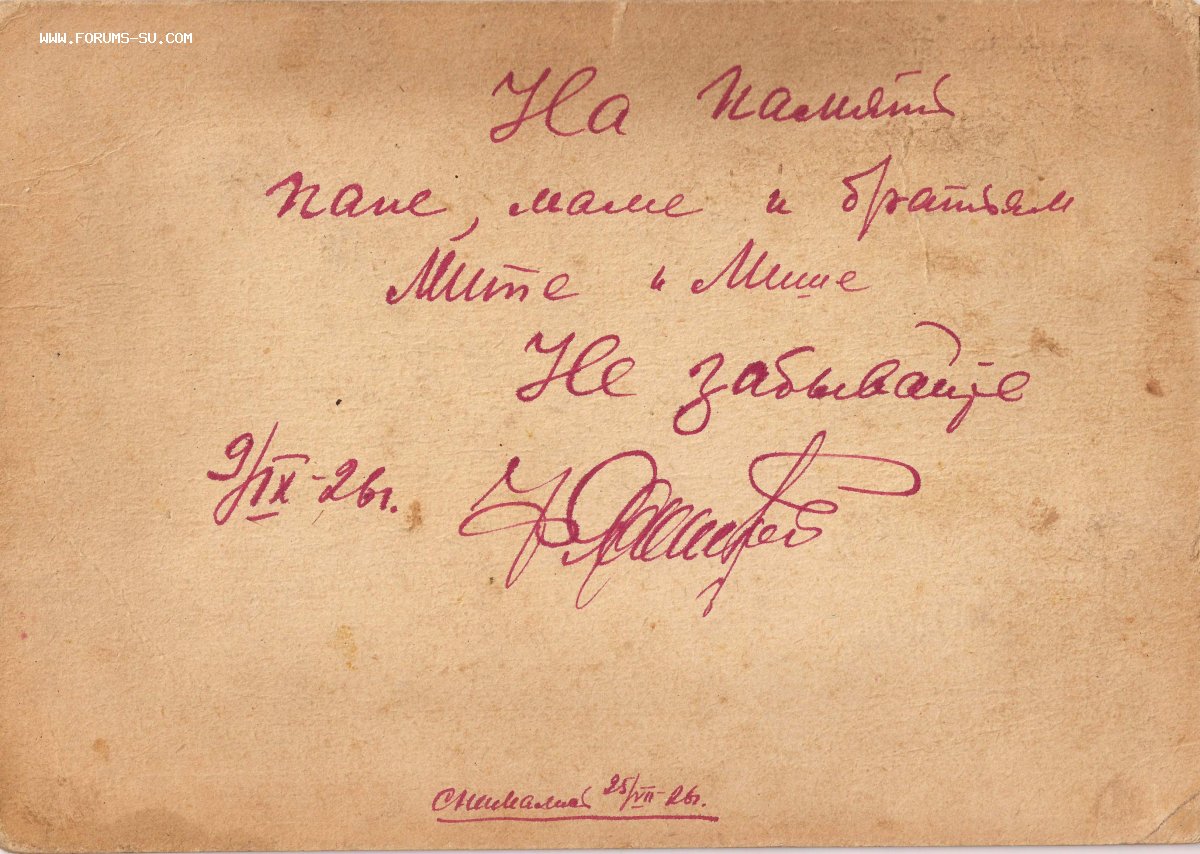 WWW.FORUMS-SU.COM
На память
папе, маме и братьям
Мите и Мише
Не забывайте
9/IX-26г.
снимался 25/VII-26г.